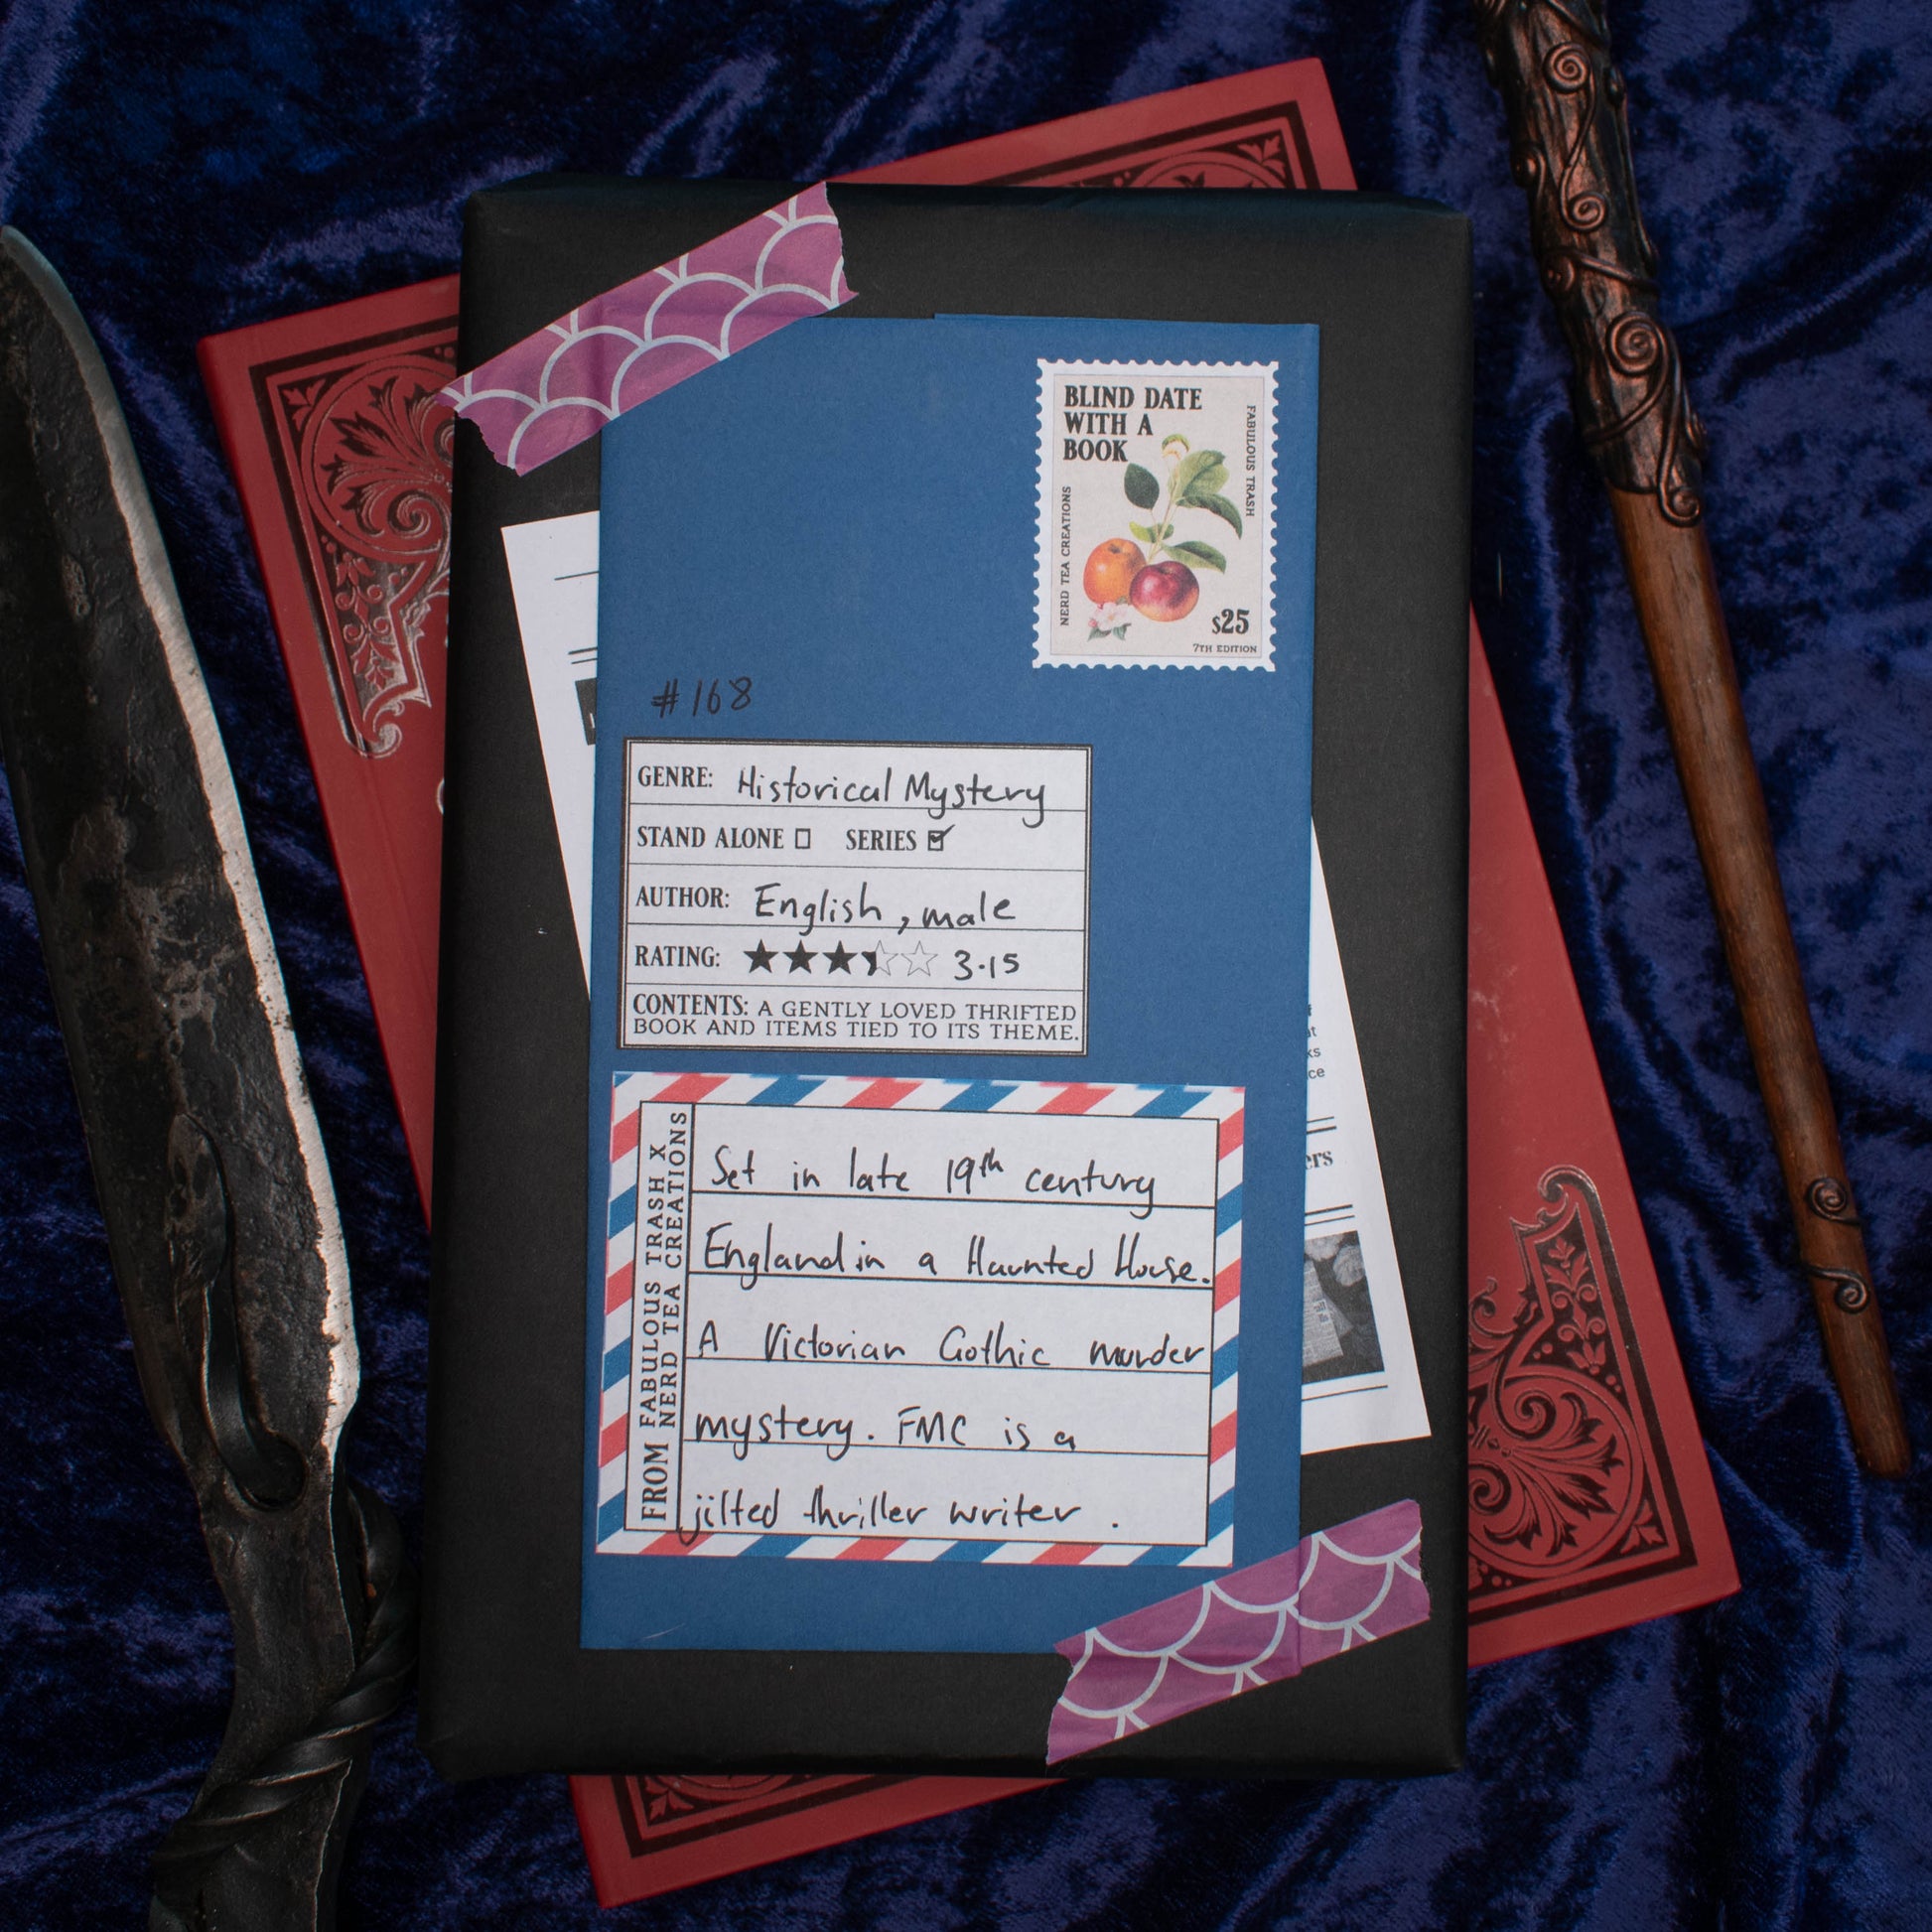 BLIND DATE
WITH A
BOOK
FABULOUS TRASH
NERD TEA CREATIONS
$25
7TH EDITION
#168
GENRE: Historical Mystery
STAND ALONE ☐ SERIES ☑
AUTHOR: English, male
RATING: 3.15
CONTENTS: A GENTLY LOVED THRIFTED
BOOK AND ITEMS TIED TO ITS THEME.
FROM FABULOUS TRASH X
NERD TEA CREATIONS
Set in late 19th century
England in a Haunted House.
A Victorian Gothic murder
mystery. FMC is a
jilted thriller writer.